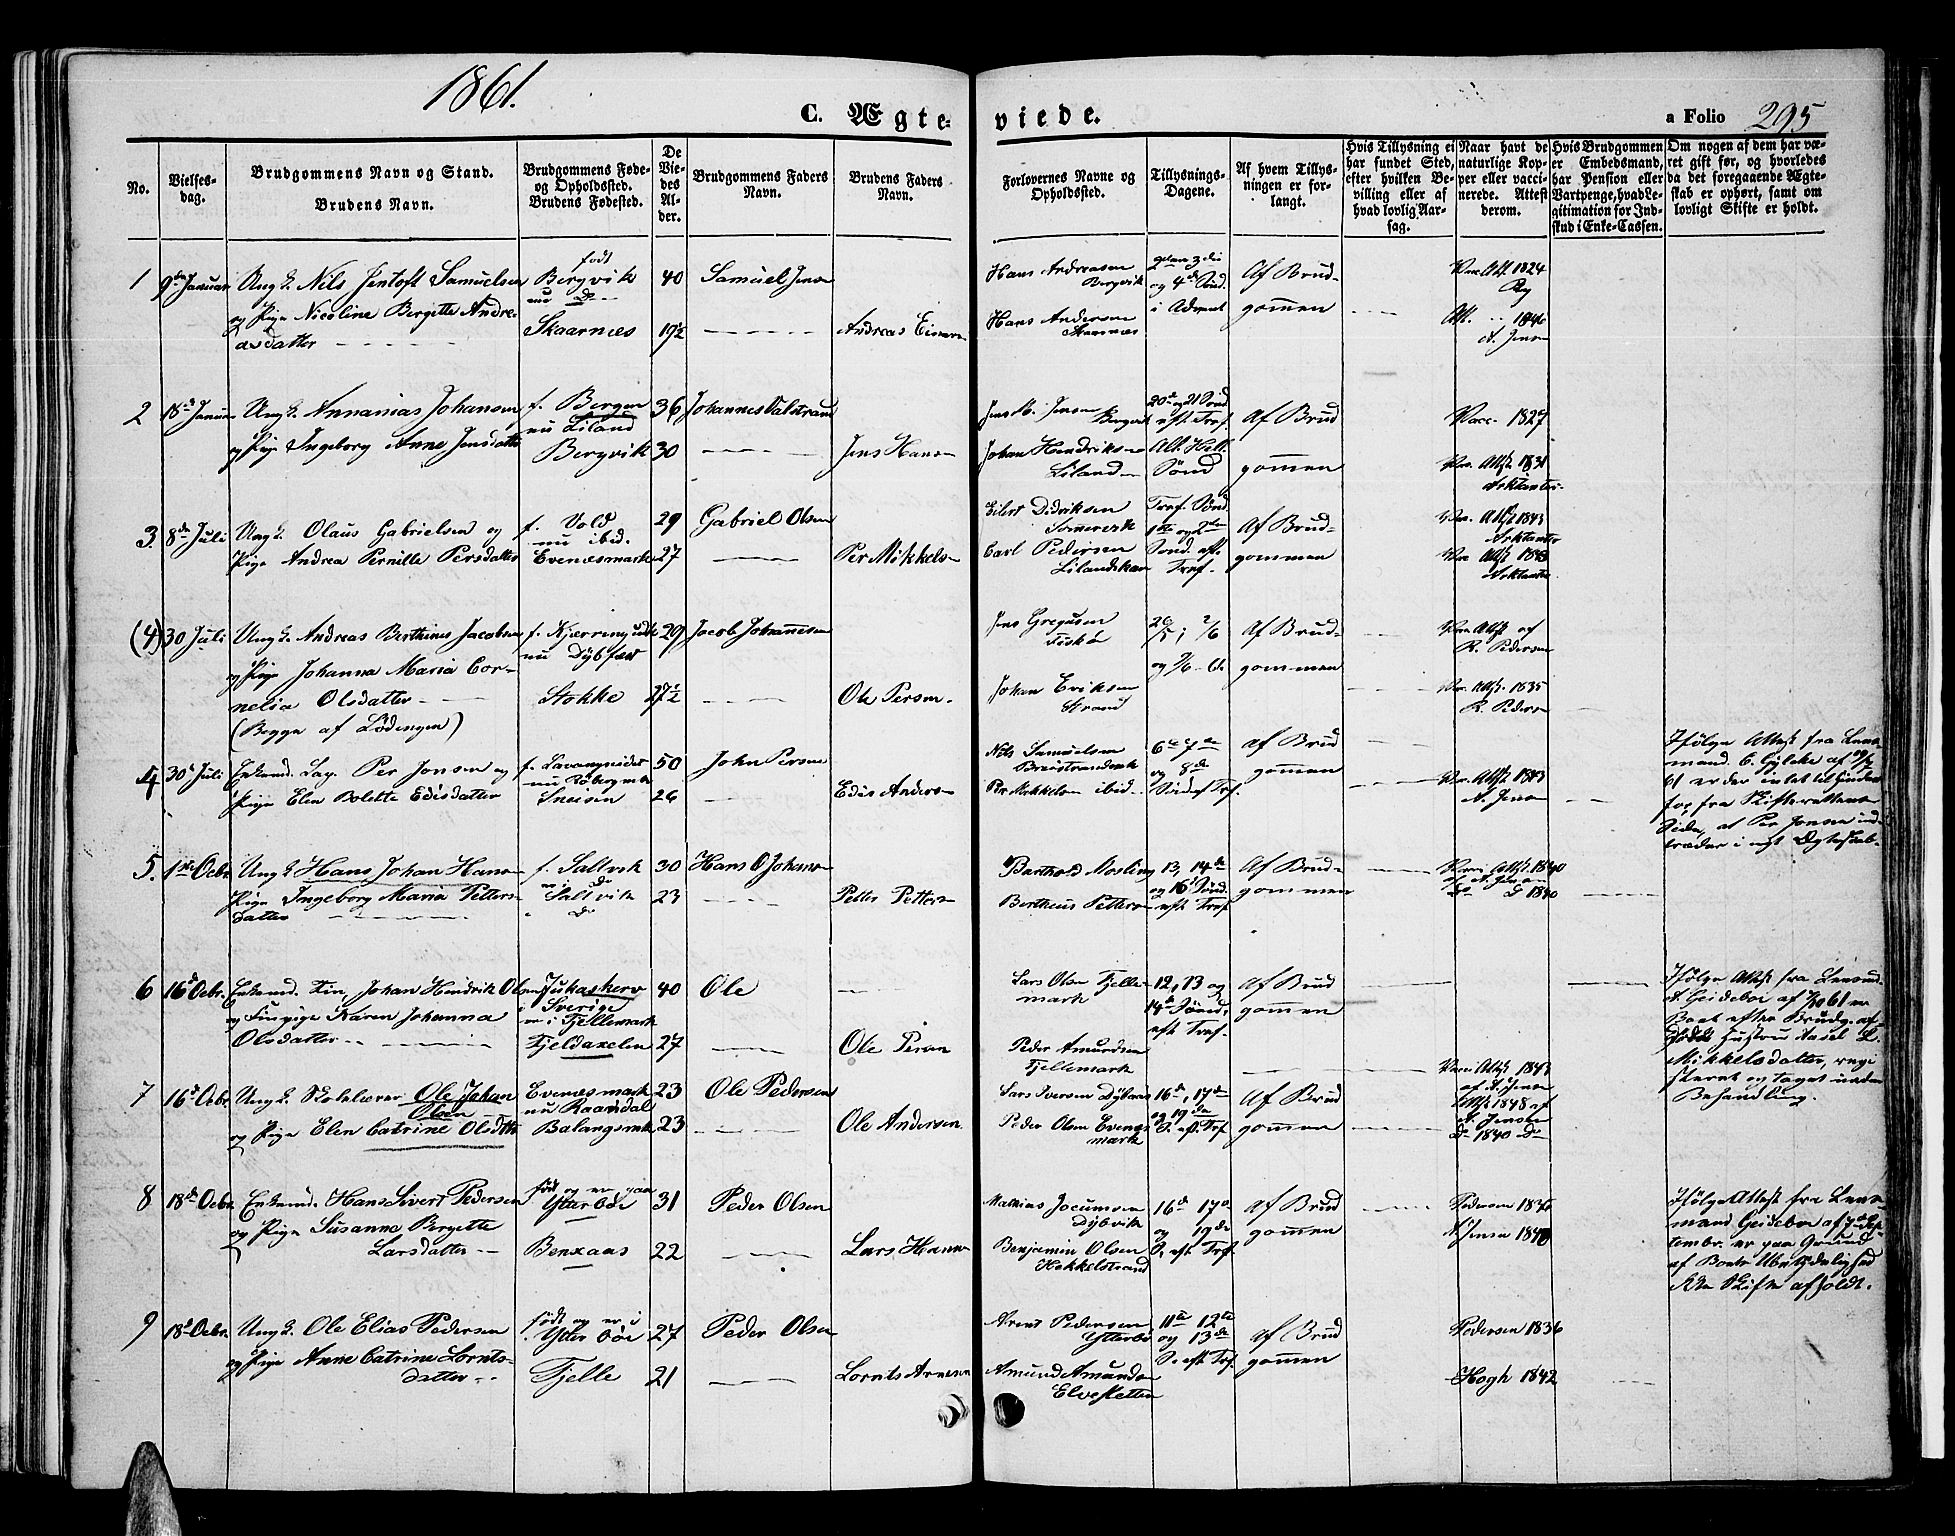 1861.
C. Ægte-
viede.
a Folio 295
No.
Vielses-
dag.
Brudgommens Navn og Stand.
Brudens Navn.
Brudgommens Føde-
og Opholdssted.
Brudens Fødested.
De
Vie-
des
Al-
der.
Brudgommens Faders
Navn.
Brudens Faders
Navn.
Forlovernes Navne og
Opholdssted.
Tillysnings-
Dagene.
Af hvem Tillys-
ningen er for-
langt.
Hvis Tillysning ei
har fundet Sted,
efter hvilken Be-
villing eller af
hvad lovlig Aar-
sag.
Naar havt de
naturlige Kop-
per eller vacci-
nerede. Attest
derom.
Hvis Brudgommen
er Embedsmand,
har Pension eller
Vartpenge, hvad Le-
gitimation for Ind-
skud i Enke-Cassen.
Om nogen af dem har væ-
ret gift før, og hvorledes
da det foregaaende Ægte-
skab er ophørt, samt om
lovligt Skifte er holdt.
1
9de Januar
Ung k. Nils Jentoft Samuelsen
og Pige Nicoline Bergitte Andre-
asdatter
født
Bergvik
nu do
Skaarnæs
40
19½
Samuel Jensen
Andreas Einers
Hans Andreasen
Bergvik
Hans Andersen
Skaarnæs
3die
og 4de Sønd.
i Advent
Af Brud-
gommen
Vac Att. 1824
Att. 1846
A. Jensen
2
18de Januar
Ung k. Annanias Johansen
og Pige Ingeborg Anne Jensdatter
f. Bergen
nu Liland
Bergvik
36
30
Johannes Valstrand
Jens Hansen
Jens M. Jensen
Bergvik
Johan Hendriksen
Liland
20de og 21 Sønd
eft. Tref.
All. Helg.
Sønd
Af Brud
gommen
Vacc. 1827
Vac. Attst 1831
3.
8de Juli
Ung k. Olaus Gabrielsen og
Pige Andrea Pernille Persdatter
f. Vold
nu ibid.
Evenæsmark
29
27
Gabriel Olsen
Per Mikkels
Eilert Didriksen
Carl Pedersen
Lilandskar
Tref. Sønd.
1ste og 2den
Sønd. eft.
Tref.
Af Brud-
gommen
Vac. Attst 1843
Vac Attst 1843
(4)
30 Juli
Ung k. Andreas Berthinus Jacobsen
og Pige Johanna Maria Cor-
nelia Olsdatter
(Begge af Lødingen)
f. Kjerringvik
nu Dybfæst
Stokke
29
27½
Jacob Johannesen
Ole Persen.
Jens Gregusen
Fiskø
Johan Eriksen
Strand
26/5, 2/6
og 9/6 61.
Af Brud-
gommen
Vac Attst af
R. Pedersen
Vac. Attst. 1835
R. Pedersen
4
30te Juli
Enkemd. Lap. Per Jonsen og
Pige Elen Bolette Edisdatter
f. Lavangseidet
Sneisen
50
26
John Persen
Edis Anders
Nils Samuelsen
Per Mikkelsen ibid
6te 7de
og 8de
Sønd eft Tref.
af Brud
gommen
Vac. Attst 1843
A. Jensen
Ifølge Attest fra Lens-
mand. C. Gylche af 19/7
61 er der intet til Hinder
for fra Skifterettens
Side, at Per Jonsen ind-
træder i nyt Ægteskab.
5.
1ste Ocbr
Ung k Hans Johan Hans
Pige Ingeborg Maria Petters-
datter
f. Saltvik
nu do
Saltvik
do
30
23
Hans O Johans
Petter Petters
Barthold Mosling
Bertheus Petters
13, 14de
og 16 Sønd.
eft. Tref
Af Brud-
gommen
Vacc Attst. 1840
af A. Jensen
Do D 1840
6
16de Ocbr.
Enkemd. Fin, Johan Hindrik Olsen
og Finpige Karen Johanna
Olsdatter
Jukaskerv
i Sverige
nu i Fjellemark
Fjeldaxelen
40
27
Ole
Ole Persen
Lars Olsen Fjelle-
mark
Peder Amundsen
Fjellemark
12, 13 og
14de Sønd.
eft Tref.
af Brud
gommen
Vacc Attst 1843
af A. Jensen
Ifølge Attest fra Lensmd.
A. Heideboe af 7/10 61 er
Boet efter Brudg. af-
døde Hustru Aasel L.
Mikkelsdatter, regi-
steret og taget under
Behandling.
7
16de Ocbr.
Ung k. Skolelærer Ole Johan
Olsen
og Pige Elen Catrine Olsdtr
Evenæsmark
nu Raandal
Balangsmk
23
23
Ole Pedersen
Ole Andersen
Lars Iversen Dybvas
Peder Olsen Evenæs-
mark
16de, 17de
og 19de
S. eft. Tref
Af Brud
gommen
Attst 1848 af
A. Jensen
Do 1840 Do
8
18de Ocbr.
Enkemd. Hans Sivert Pedersen
og Pige Susanne Bergitte
Larsdatter
født og er paa
Ytterbøe
Benxaas
31
22
Peder Olsen
Lars Hans
Mathias Jocumsen
Dybvik
Benjamin Olsen
Hekkelstrand
16de 17de
og 19de
S. eft Tref.
af Brud
gommen
Pedersen 1836
A Jensen 1840
Ifølge Attest fra Lens-
mand Heideboe af 7de Sep-
tembr. er paa Grund
af Boets Ubetydelighed
ikke Skifte afholdt.
9
18de Ocbr.
Ung k. Ole Elias Pedersen
og Pige Anne Catrine Lornts-
datter
født og er i
Ytterbøe
Fjelle
27
21
Peder Olsen
Lornts Arnesen
Arent Pedersen
Ytterbø
Amund Amunds
Elvesletten
11te 12te
og 13de
S. eft Tref.
af Brud
gommen
Pedersen 1836
Hogh 1842